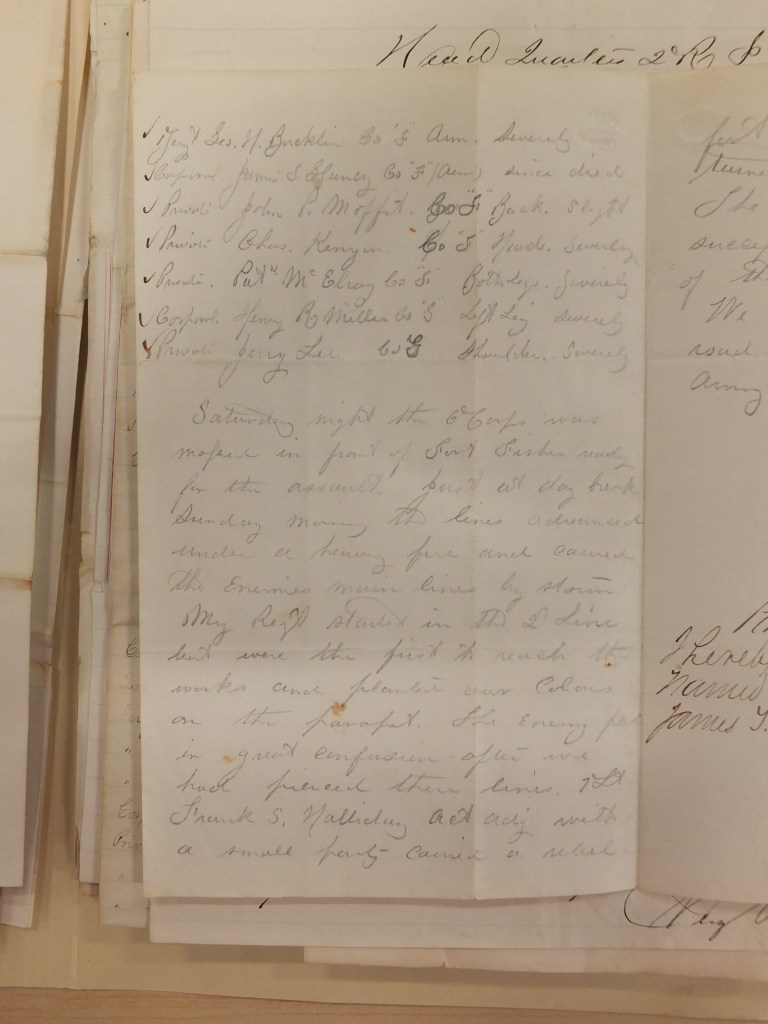 Head Quarters 2d R I
Serg't Geo. H. Bucklin Co "F" Arm. Severely
Corporal James S. Clancy Co "F" (Arm) since died
Private John P. Moffit. Co "F" Back. Slight
Private Chas. Kenyon. Co "F" Head. Severely
Private. Pat'k McElroy Co "F" Both legs. Severely
Corporal Henry R Miller Co "G" Left Leg Severely
Private Jerry Lee Co G Shoulder. Severely
Saturday night the 6th Corps was
massed in front of Fort Fisher ready
for the assault. Just at day break
Sunday morning the lines advanced
under a heavy fire and carried
the Enemies main lines by storm
My Reg't started in the 2d Line
but were the first to reach the
works and planted our Colors
on the parapet. The Enemy fled
in great confusion after we
had pierced their lines. 1st Lt
Frank S. Halliday act adj with
a small party carried a rebel
turne
The
succe
of th
We
road
Army
I hereby
named
James T.